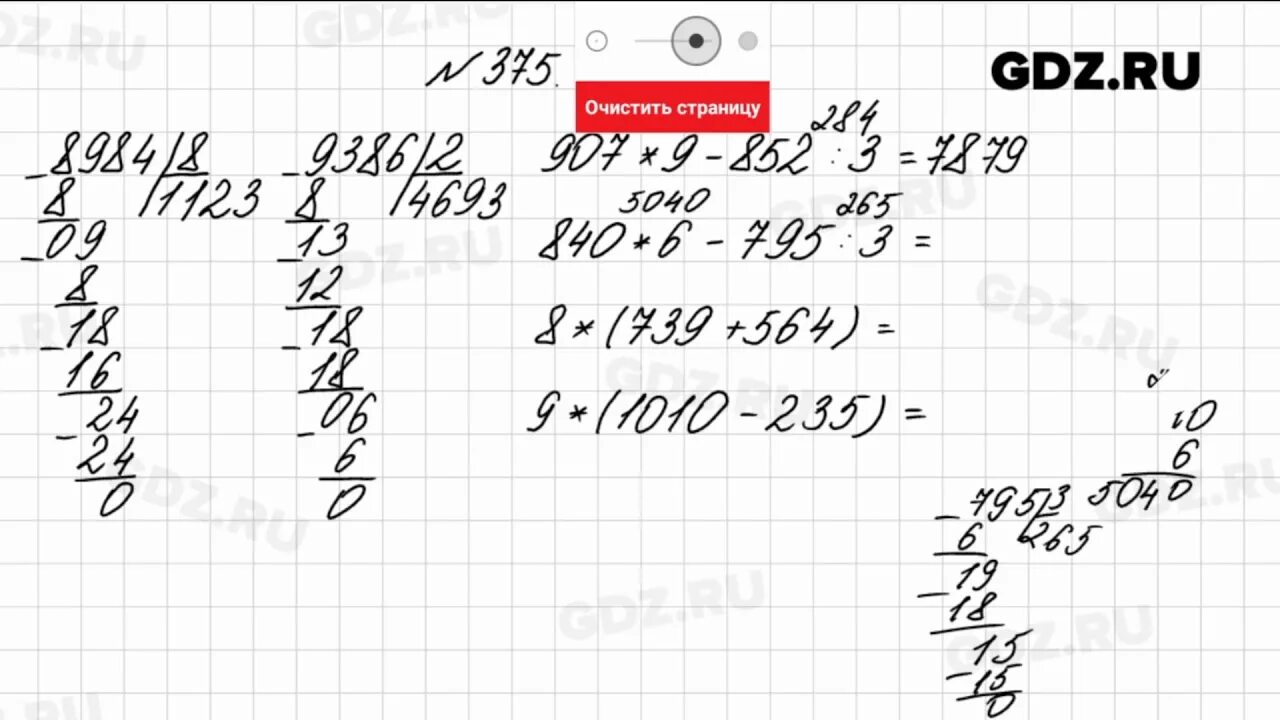 GDZ.RU
№ 375.
Очистить страницу
-8984 | 8
8 | 1123
-09
8
-18
16
-24
24
0
-9386 | 2
8 | 4693
-13
12
-18
18
-06
6
0
284
907 * 9 - 852 : 3 = 7879
5040 265
840 * 6 - 795 : 3 =
8 * (739 + 564) =
9 * (1010 - 235) =
0
6
5040
-795 | 3
6 | 265
-19
18
-15
15
0